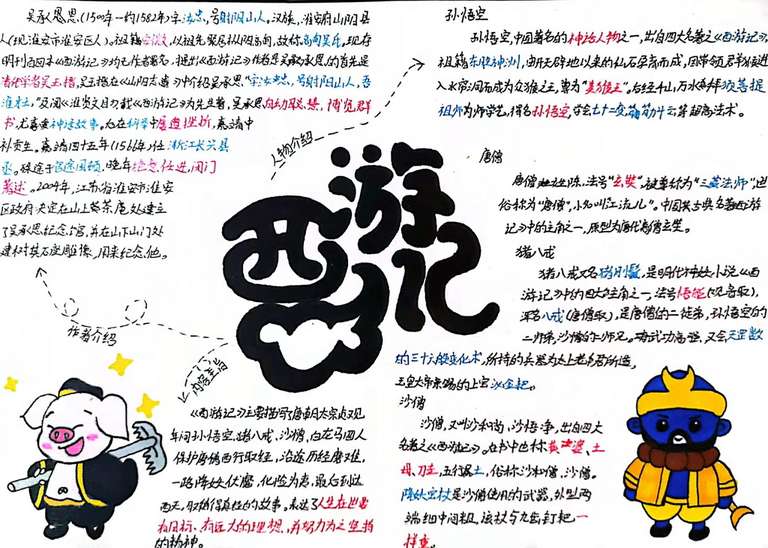 吴承恩(1500年—约1582年)字汝忠,号射阳山人。汉族,淮安府山阳县
人(现淮安市淮安区人)。祖籍安徽,以祖先聚居枞阳高甸,故称高甸吴氏。现存
明刊百回本《西游记》均无作者署名。提出《西游记》作者是吴承恩的首先是
清代学者吴玉搢,吴玉搢在《山阳志遗》中介绍吴承恩:"字汝忠,号射阳山人,吾
淮才士",及阅《淮贤文目》载《西游记》为先生著。吴承恩自幼聪慧,博览群
书,尤喜爱神话故事。在科举中屡遭挫折,嘉靖中
补贡生。嘉靖四十五年(1566年)任浙江长兴县
丞。由于宦途困顿,晚年绝意仕进,闭门
著述。2004年,江苏省淮安市淮安
区政府决定在山上
吴承恩纪念馆,并在山下山门处
用来纪念他。
作者介绍
人物介绍
内容主旨
西游记
孙悟空
孙悟空,中国著名的神话人物之一,出自四大名著之《西游记》。
祖籍东胜神洲,由开天辟地以来的仙石孕育而成,因带领群猴进
入水帘洞而成为众猴之王,尊为"美猴王"。后经千山万水拜须菩提
祖师为师学艺,得名孙悟空,学会七十二变、筋斗云等超高法术。
唐僧
唐僧姓陈,法号"玄奘",被尊称为"三藏法师",世
俗称为"唐僧",小名叫"江流儿"。中国古典名著《西游
记》中的主角之一,原型为唐代高僧玄奘。
猪八戒
猪八戒又名猪刚鬣,是明代神魔小说《西
游记》中的四大主角之一,法号悟能(观音取),
浑名八戒(唐僧取),是唐僧的二徒弟,孙悟空的
二师弟,沙僧的二师兄。猪武功高强,又会天罡数
的三十六般变化术,所持的兵器为太上老君所造,
玉皇大帝亲赐的上宝沁金耙。
沙僧
沙僧,又叫沙和尚,沙悟净,出自四大
名著之《西游记》。在书中也称黄婆、土
母、刀圭,五行属土,俗称沙和僧、沙僧。
降妖宝杖是沙僧使用的武器,外型两
端细中间粗,该杖与九齿钉耙一
样重。
《西游记》主要描写了唐朝太宗贞观
年间孙悟空、猪八戒、沙僧、白龙马四人
保护唐僧西行取经,沿途历经磨难,
一路降妖伏魔,化险为夷,最后到达
西天,取得真经的故事。表达了人生在世要
有目标、有远大的理想,并努力为之坚持
的精神。